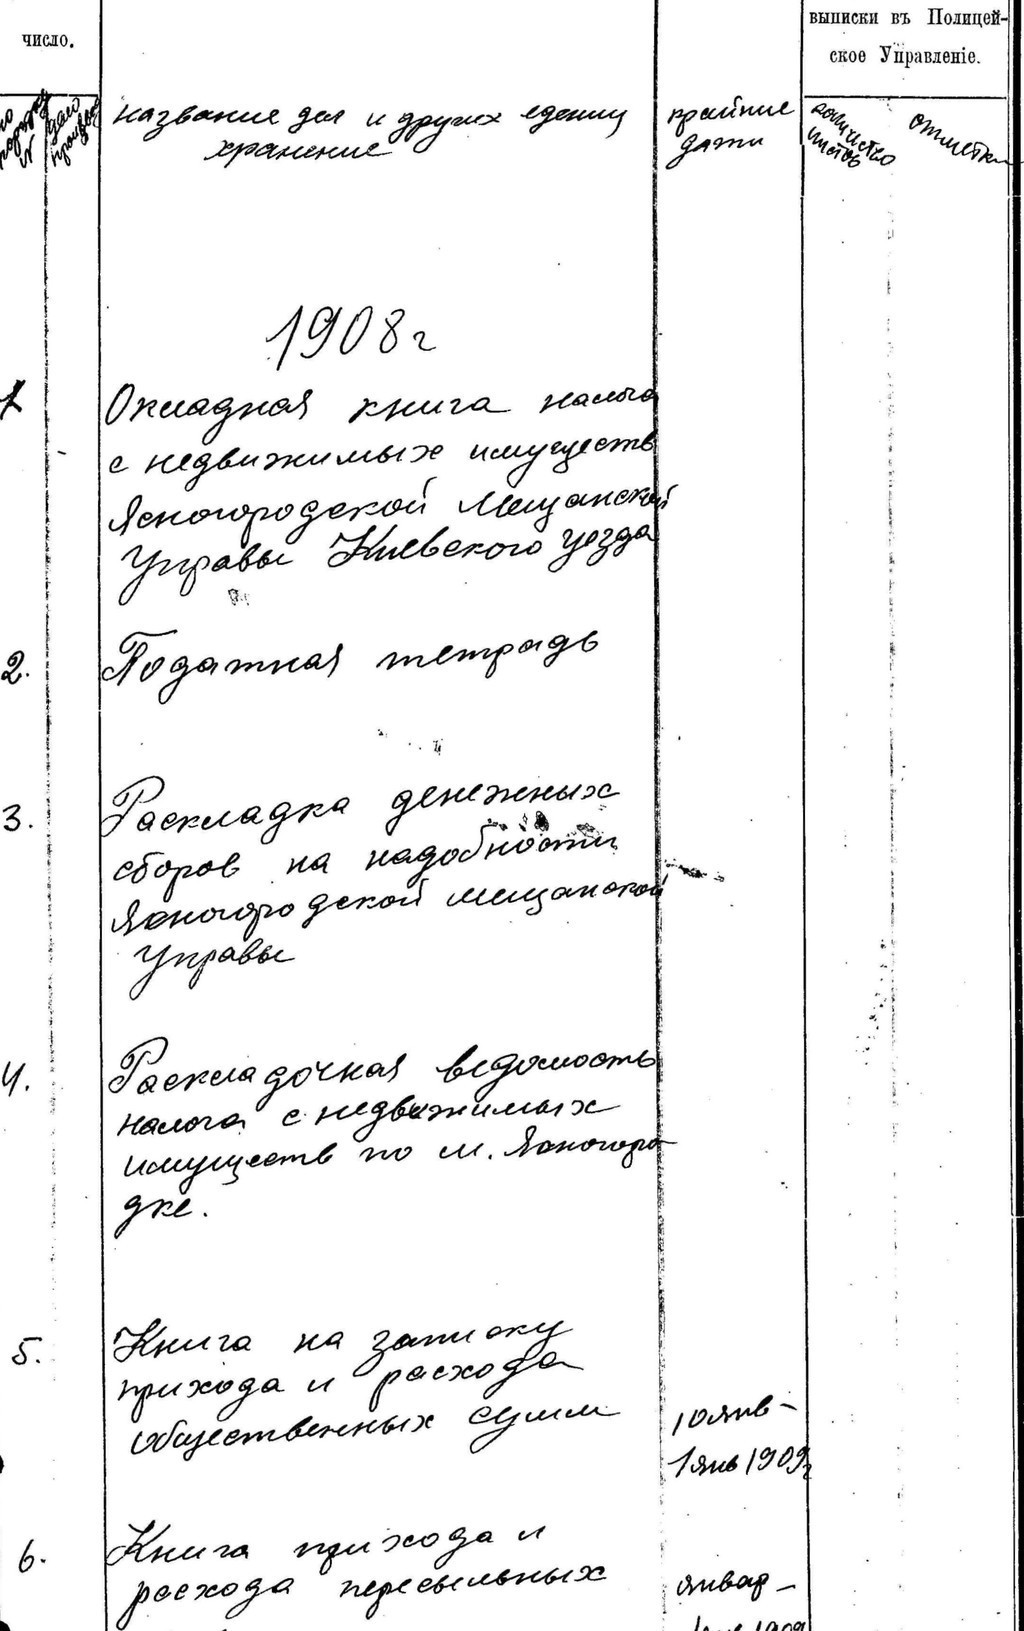 выписки въ Полицей-
число.
ское Управленіе.
по порядку №
дело произв
название дел и других единиц
хранение
крайние
даты
количество
листов
отметки
1908г
1
Окладная книга налога
с недвижимых имуществ
Ясногородской Мещанской
Управы Киевского уезда
2.
Податная тетрадь
3.
Раскладка денежных
сборов на надобности
Ясногородской мещанской
Управы
4.
Раскладочная ведомость
налога с недвижимых
имуществ по м. Ясногоро-
дке.
5.
Книга на записку
прихода и расхода
общественных сумм
10янв-
1янв 1909г
6.
Книга прихода и
расхода пересыльных
январ-
1909